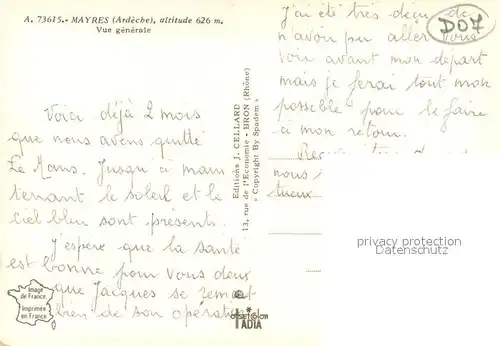 A. 73615.- MAYRES (Ardèche), altitude 626 m.
Vue générale
Voici déjà 2 mois
que nous avons quitté
Le Mans. Jusqu'à main
tenant le soleil et le
ciel bleu sont présents.
J'espère que la santé
est bonne pour vous deux
que Jacques se remet
bien de son opération
Editions J. CELLARD
13, rue de l'Economie - BRON (Rhône)
« Copyright By Spadem »
J'ai été très déçu de
n'avoir pu aller vous
voir avant mon départ
mais je ferai tout mon
possible pour le faire
à mon retour.
nous
tueux
D07
privacy protection
Image
de France
Imprimée
en France
IADIA